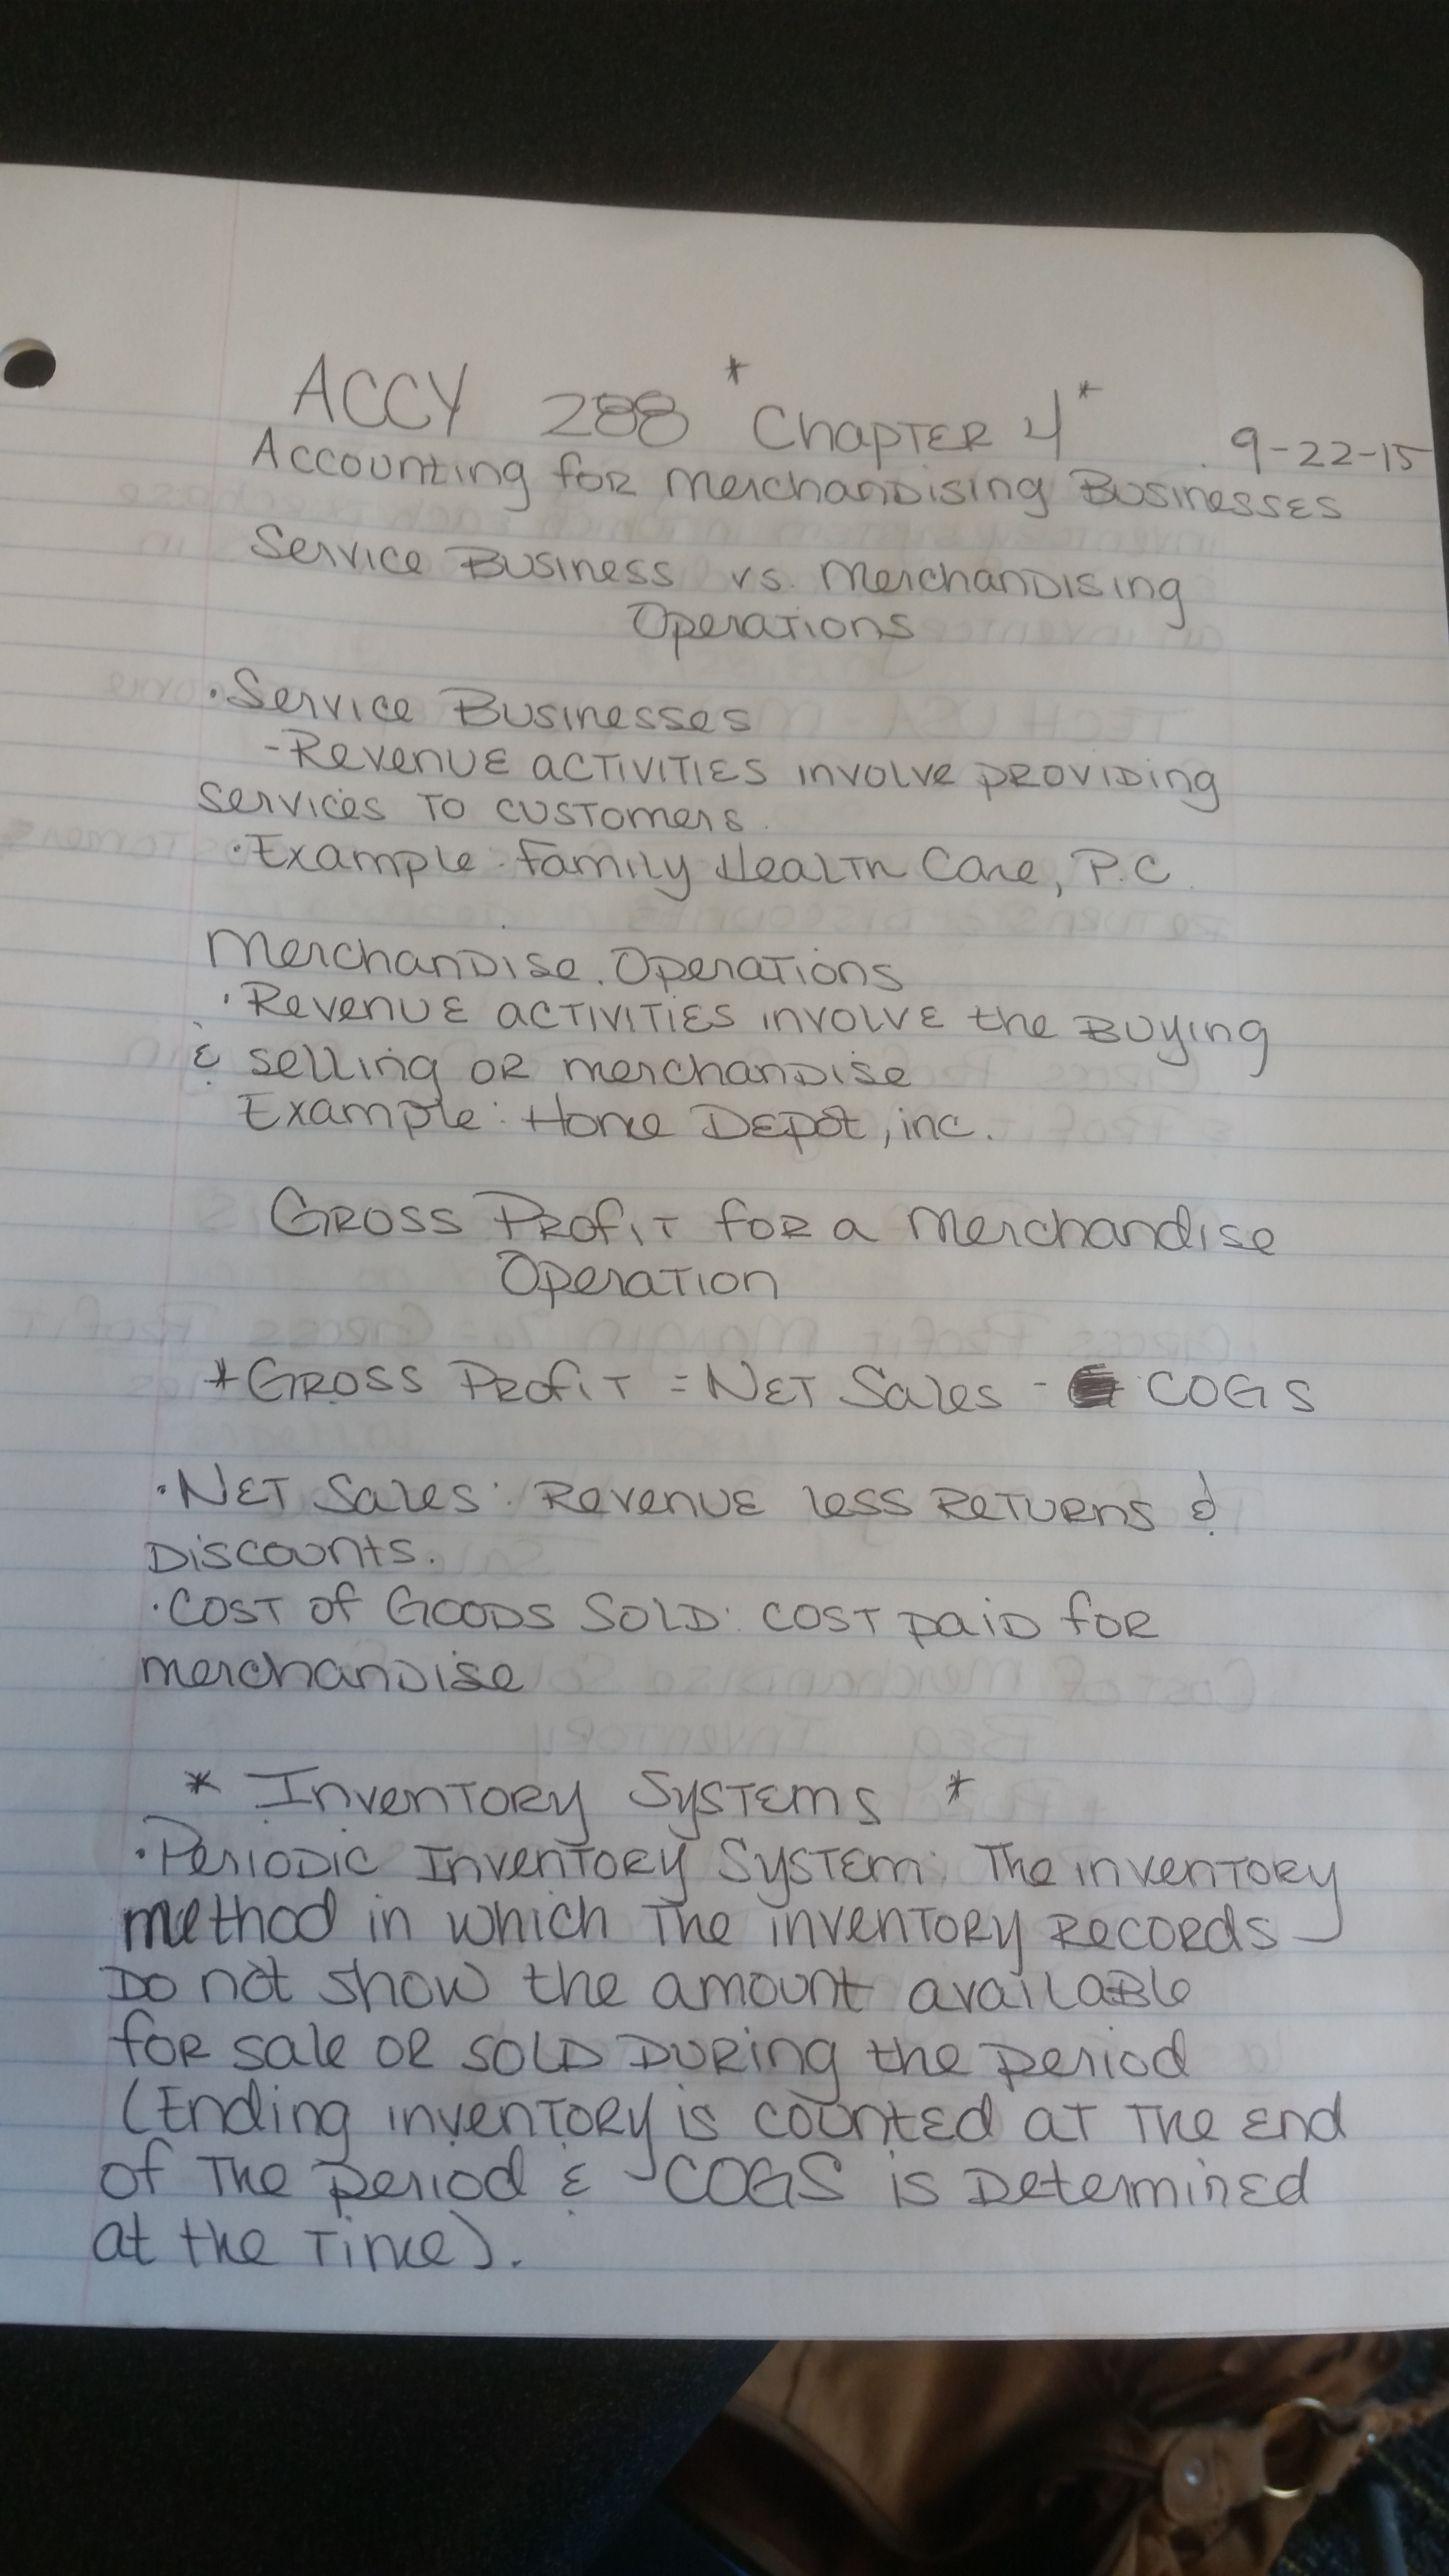 ACCY 288 * Chapter 4 *
9-22-15
Accounting for Merchandising Businesses
Service Business vs. Merchandising
Operations
· Service Businesses
- Revenue activities involve providing
services to customers.
· Example: Family Health Care, P.C.
Merchandise Operations
· Revenue activities involve the buying
& selling or merchandise
Example: Home Depot, inc.
Gross Profit for a Merchandise
Operation
* Gross Profit = Net Sales - COGS
· Net Sales: Revenue less Returns &
Discounts.
· Cost of Goods Sold: cost paid for
merchandise
* Inventory Systems *
· Periodic Inventory System: The inventory
method in which the inventory records
Do not show the amount available
for sale or sold during the period
(Ending inventory is counted at the end
of the period & COGS is Determined
at the time).